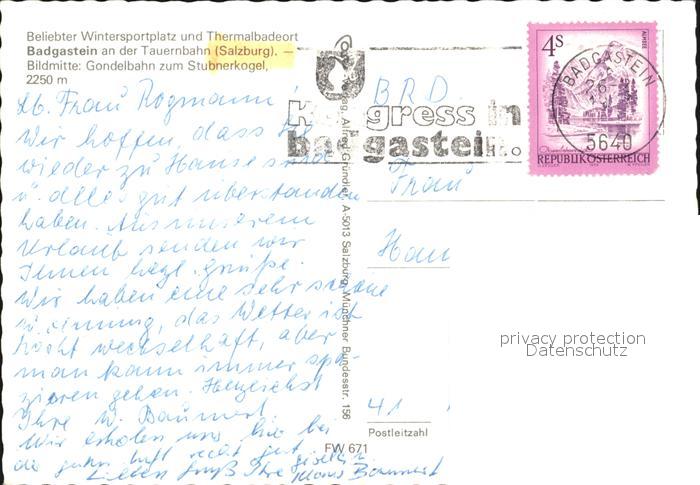 Beliebter Wintersportplatz und Thermalbadeort
Badgastein an der Tauernbahn (Salzburg). —
Bildmitte: Gondelbahn zum Stubnerkogel,
2250 m
Lb. Frau Rogmann!
Wir hoffen, dass Sie
wieder zu Hause sind
u. alles gut überstanden
haben. Aus unserem
Urlaub senden wir
Ihnen herzl. Grüße.
Wir haben eine sehr schöne
das Wetter ist
wechselhaft, aber
man kann immer spa-
zieren gehen. Herzlichst
Ihre W. Baumert
Wir erholen uns hier bei
der guten Luft recht gut
Lieben Gruß Ihre Klaus Baumert
Verlag Alfred Gründler, A-5013 Salzburg, Münchner Bundesstr. 156
FW 671
Kongress in
badgastein.
4 S
ALMSEE
REPUBLIK ÖSTERREICH
BADGASTEIN
5640
BRD
Frau
Han
41
Postleitzahl
privacy protection
Datenschutz